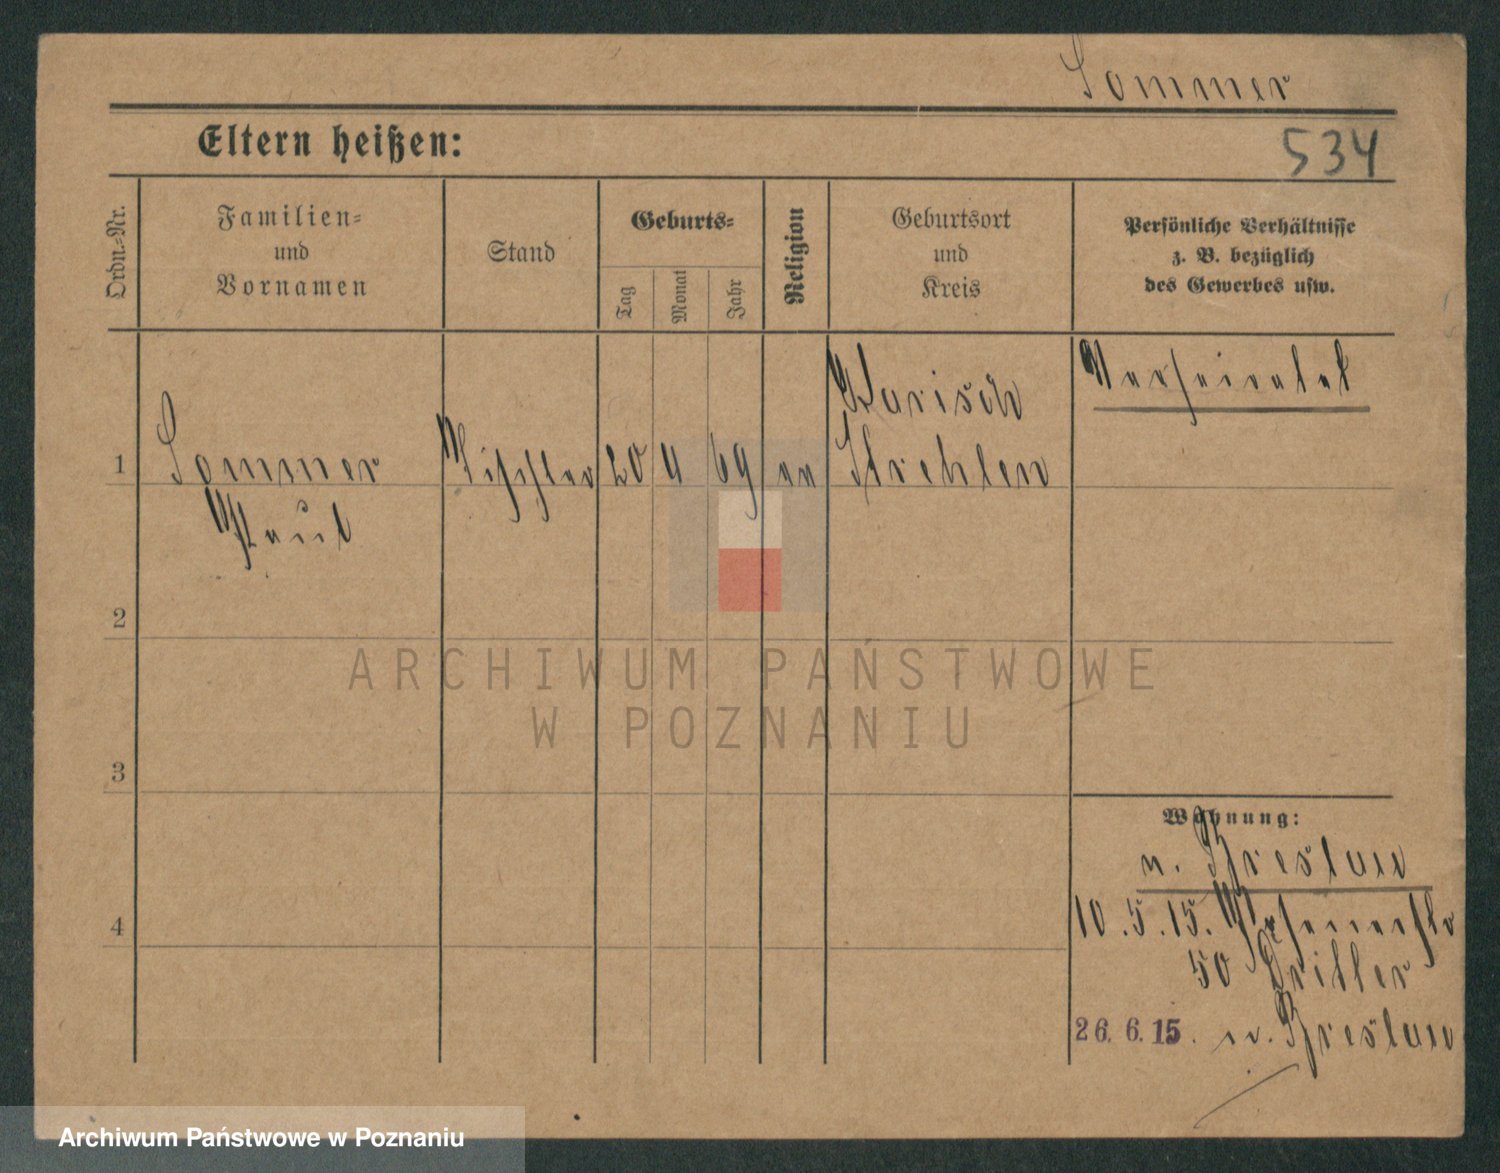 Sommer
Eltern heißen:
534
Ordn.-Nr.
Familien-
und
Vornamen
Stand
Geburts-
Tag
Monat
Jahr
Religion
Geburtsort
und
Kreis
Persönliche Verhältnisse
z. B. bezüglich
des Gewerbes usw.
1
Sommer
Paul
Tischler
20
4
69
Strehlen
Verheiratet
2
3
4
Wohnung:
n. Breslau
10.5.15.
50
26.6.15. n. Breslau
ARCHIWUM PAŃSTWOWE
W POZNANIU
Archiwum Państwowe w Poznaniu